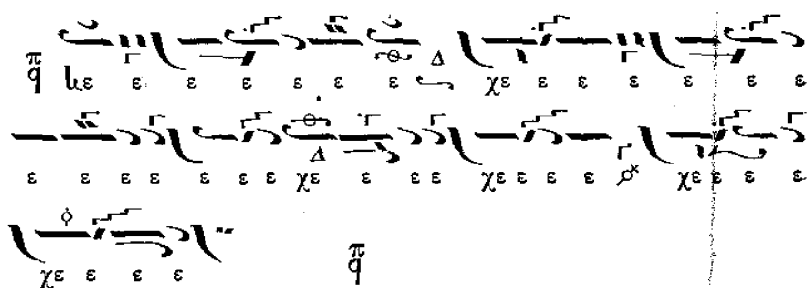 π q ε ε ε ε ε ε Δ χε ε ε ε ε ε ε
ε ε ε ε ε ε ε χε Δ ε ε ε χε ε ε ε χε ε ε ε
χε ε ε ε π q